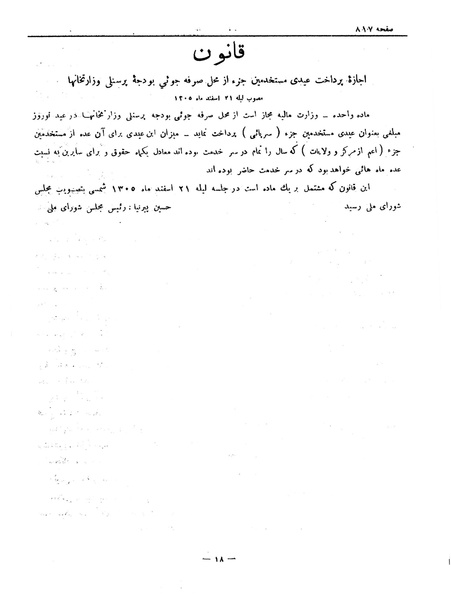 صفحه ۸۱۷
قانون
اجازهٔ پرداخت عیدی مستخدمین جزء از محل صرفه جوئی بودجهٔ پرسنلی وزارتخانها
مصوب لیله ۲۱ اسفند ماه ۱۳۰۵
ماده واحده ـ وزارت مالیه مجاز است از محل صرفه جوئی بودجه پرسنلی وزارتخانها در عید نوروز
مبلغی بعنوان عیدی مستخدمین جزء ( سرپائی ) پرداخت نماید ـ میزان این عیدی برای آن عده از مستخدمین
جزء ( اعم از مرکز و ولایات ) که سال را تمام در سر خدمت بوده اند معادل یکماه حقوق و برای سایرین به نسبت
عده ماه هائی خواهد بود که در سر خدمت حاضر بوده اند
این قانون که مشتمل بر یك ماده است در جلسه لیله ۲۱ اسفند ماه ۱۳۰۵ شمسی بتصویب مجلس
شورای ملی رسید حسین پیرنیا : رئیس مجلس شورای ملی
— ۱۸ —